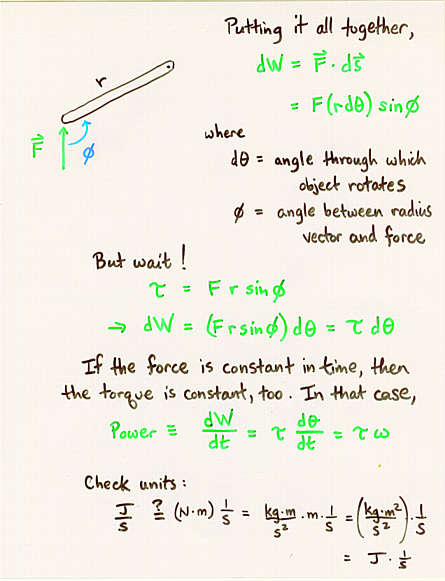 Putting it all together,
dW = F⃗ · ds⃗
= F(rdθ) sinϕ
r
F⃗
ϕ
where
dθ = angle through which
object rotates
ϕ = angle between radius
vector and force
But wait!
τ = F r sinϕ
⇒ dW = (F r sinϕ) dθ = τ dθ
If the force is constant in time, then
the torque is constant, too. In that case,
Power ≡ dW/dt = τ dθ/dt = τ ω
Check units:
J/s ≟ (N·m) 1/s = kg·m/s² · m · 1/s = (kg·m²/s²) · 1/s
= J · 1/s